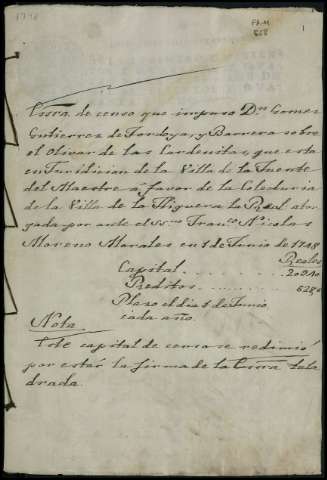 1748
FA.M
858
1
Escra. de censo que impuso Dn. Gomez
Gutierrez de Tordoya, y Barrera sobre
el Olivar de las Cardenitas, que esta
en Juridicion de la Villa de la Fuente
del Maestre a favor de la Colecturia
de la Villa de la Higuera la Real otor
gada por ante el SSno. Franco. Nicolas
Moreno Morales en 1 de Junio de 1748
Reales
Capital
Reditos
Plazo el dia 1 de Junio
cada año
Nota.
Este capital de censo se redimió
por estár la firma de la Escra. tala
drada.